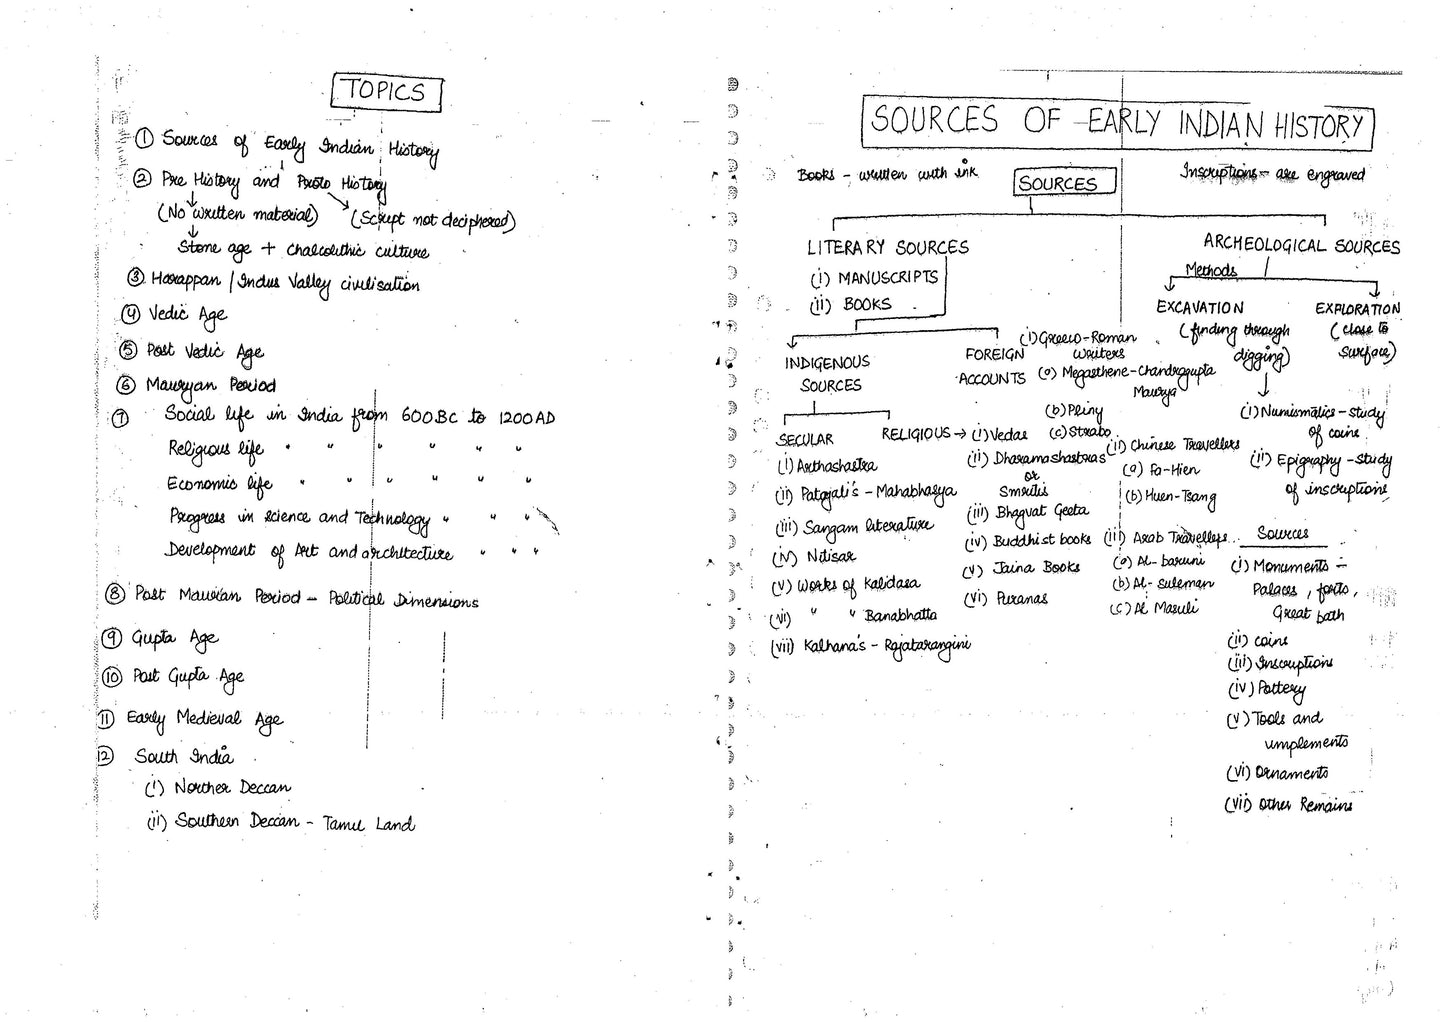 TOPICS
① Sources of Early Indian History
② Pre History and Proto History
(No written material) (Script not deciphered)
Stone age + Chalcolithic culture
③ Harappan / Indus Valley civilisation
④ Vedic Age
⑤ Post Vedic Age
⑥ Mauryan Period
⑦ Social life in India from 600BC to 1200AD
Religious life " " " " " "
Economic life " " " " " "
Progress in science and Technology " " "
Development of Art and architecture " " "
⑧ Post Maurian Period - Political Dimensions
⑨ Gupta Age
⑩ Post Gupta Age
⑪ Early Medieval Age
⑫ South India
(i) Norther Deccan
(ii) Southern Deccan - Tamil Land
SOURCES OF EARLY INDIAN HISTORY
Books - written with ink
Inscriptions - are engraved
SOURCES
LITERARY SOURCES
(i) MANUSCRIPTS
(ii) BOOKS
INDIGENOUS
SOURCES
SECULAR
(i) Arthashastra
(ii) Patajali's - Mahabhasya
(iii) Sangam literature
(iv) Nitisar
(v) Works of Kalidasa
(vi) " " Banabhatta
(vii) Kalhana's - Rajatarangini
RELIGIOUS → (i) Vedas
(ii) Dharamashastras
or
Smritis
(iii) Bhagvat Geeta
(iv) Buddhist books
(v) Jaina Books
(vi) Puranas
FOREIGN
ACCOUNTS
(i) Greeco-Roman
writers
(a) Megasthene - Chandragupta
Maurya
(b) Pliny
(c) Strabo
(ii) Chinese Travellers
(a) Fa-Hien
(b) Huen-Tsang
(iii) Arab Travellers
(a) Al-baruni
(b) Al-suleman
(c) Al Masuli
ARCHEOLOGICAL SOURCES
Methods
EXCAVATION
(finding through
digging)
EXPLORATION
(close to
surface)
(i) Numismatics - study
of coins
(ii) Epigraphy - study
of inscriptions
Sources
(i) Monuments -
Palaces, forts,
Great bath
(ii) coins
(iii) Inscriptions
(iv) Pottery
(v) Tools and
implements
(vi) Ornaments
(vii) Other Remains